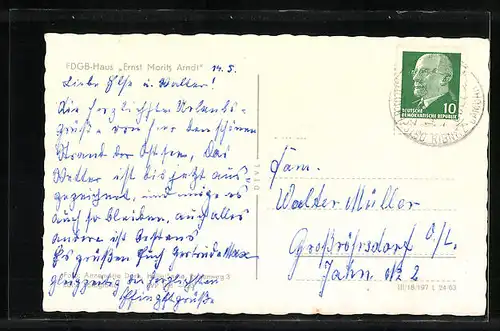 FDGB-Haus „Ernst Moritz Arndt"
14. 5.
Liebe Else u. Walter!
Die herzlichsten Urlaubs-
grüße vom schönen
Strand der Ostsee, Das
Wetter ist bis jetzt aus
gezeichnet, und möge es
auch so bleiben, auch alles
andere ist bestens
Es grüßen Euch Gertrud u. Max
gleichzeitig die herzlichsten
Pfingstgrüße
Foto:
DTVL
DEUTSCHE
DEMOKRATISCHE REPUBLIK
10
Fam.
Walter Müller
Großröhrsdorf O/L.
Jahn 2
III/18/197 L 24/63